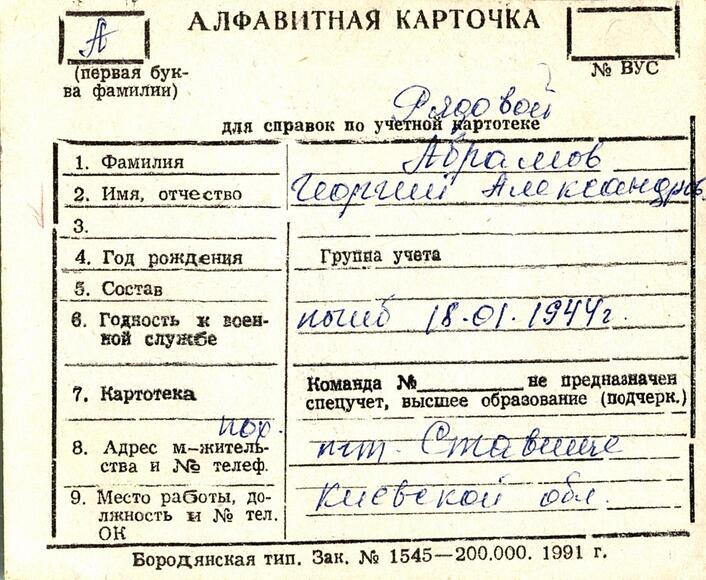 АЛФАВИТНАЯ КАРТОЧКА
А
(первая бук-
ва фамилии)
№ ВУС
Рядовой
для справок по учетной картотеке
1. Фамилия Абрамов
2. Имя, отчество Георгий Александров.
3.
4. Год рождения Группа учета
5. Состав
6. Годность к воен-
ной службе погиб 18.01.1944г.
7. Картотека Команда №________ не предназначен
спецучет, высшее образование (подчерк.)
пох.
8. Адрес м-житель- пгт. Ставище
ства и № телеф.
9. Место работы, до- Киевской обл.
лжность и № тел.
ОК
Бородянская тип. Зак. № 1545—200.000. 1991 г.